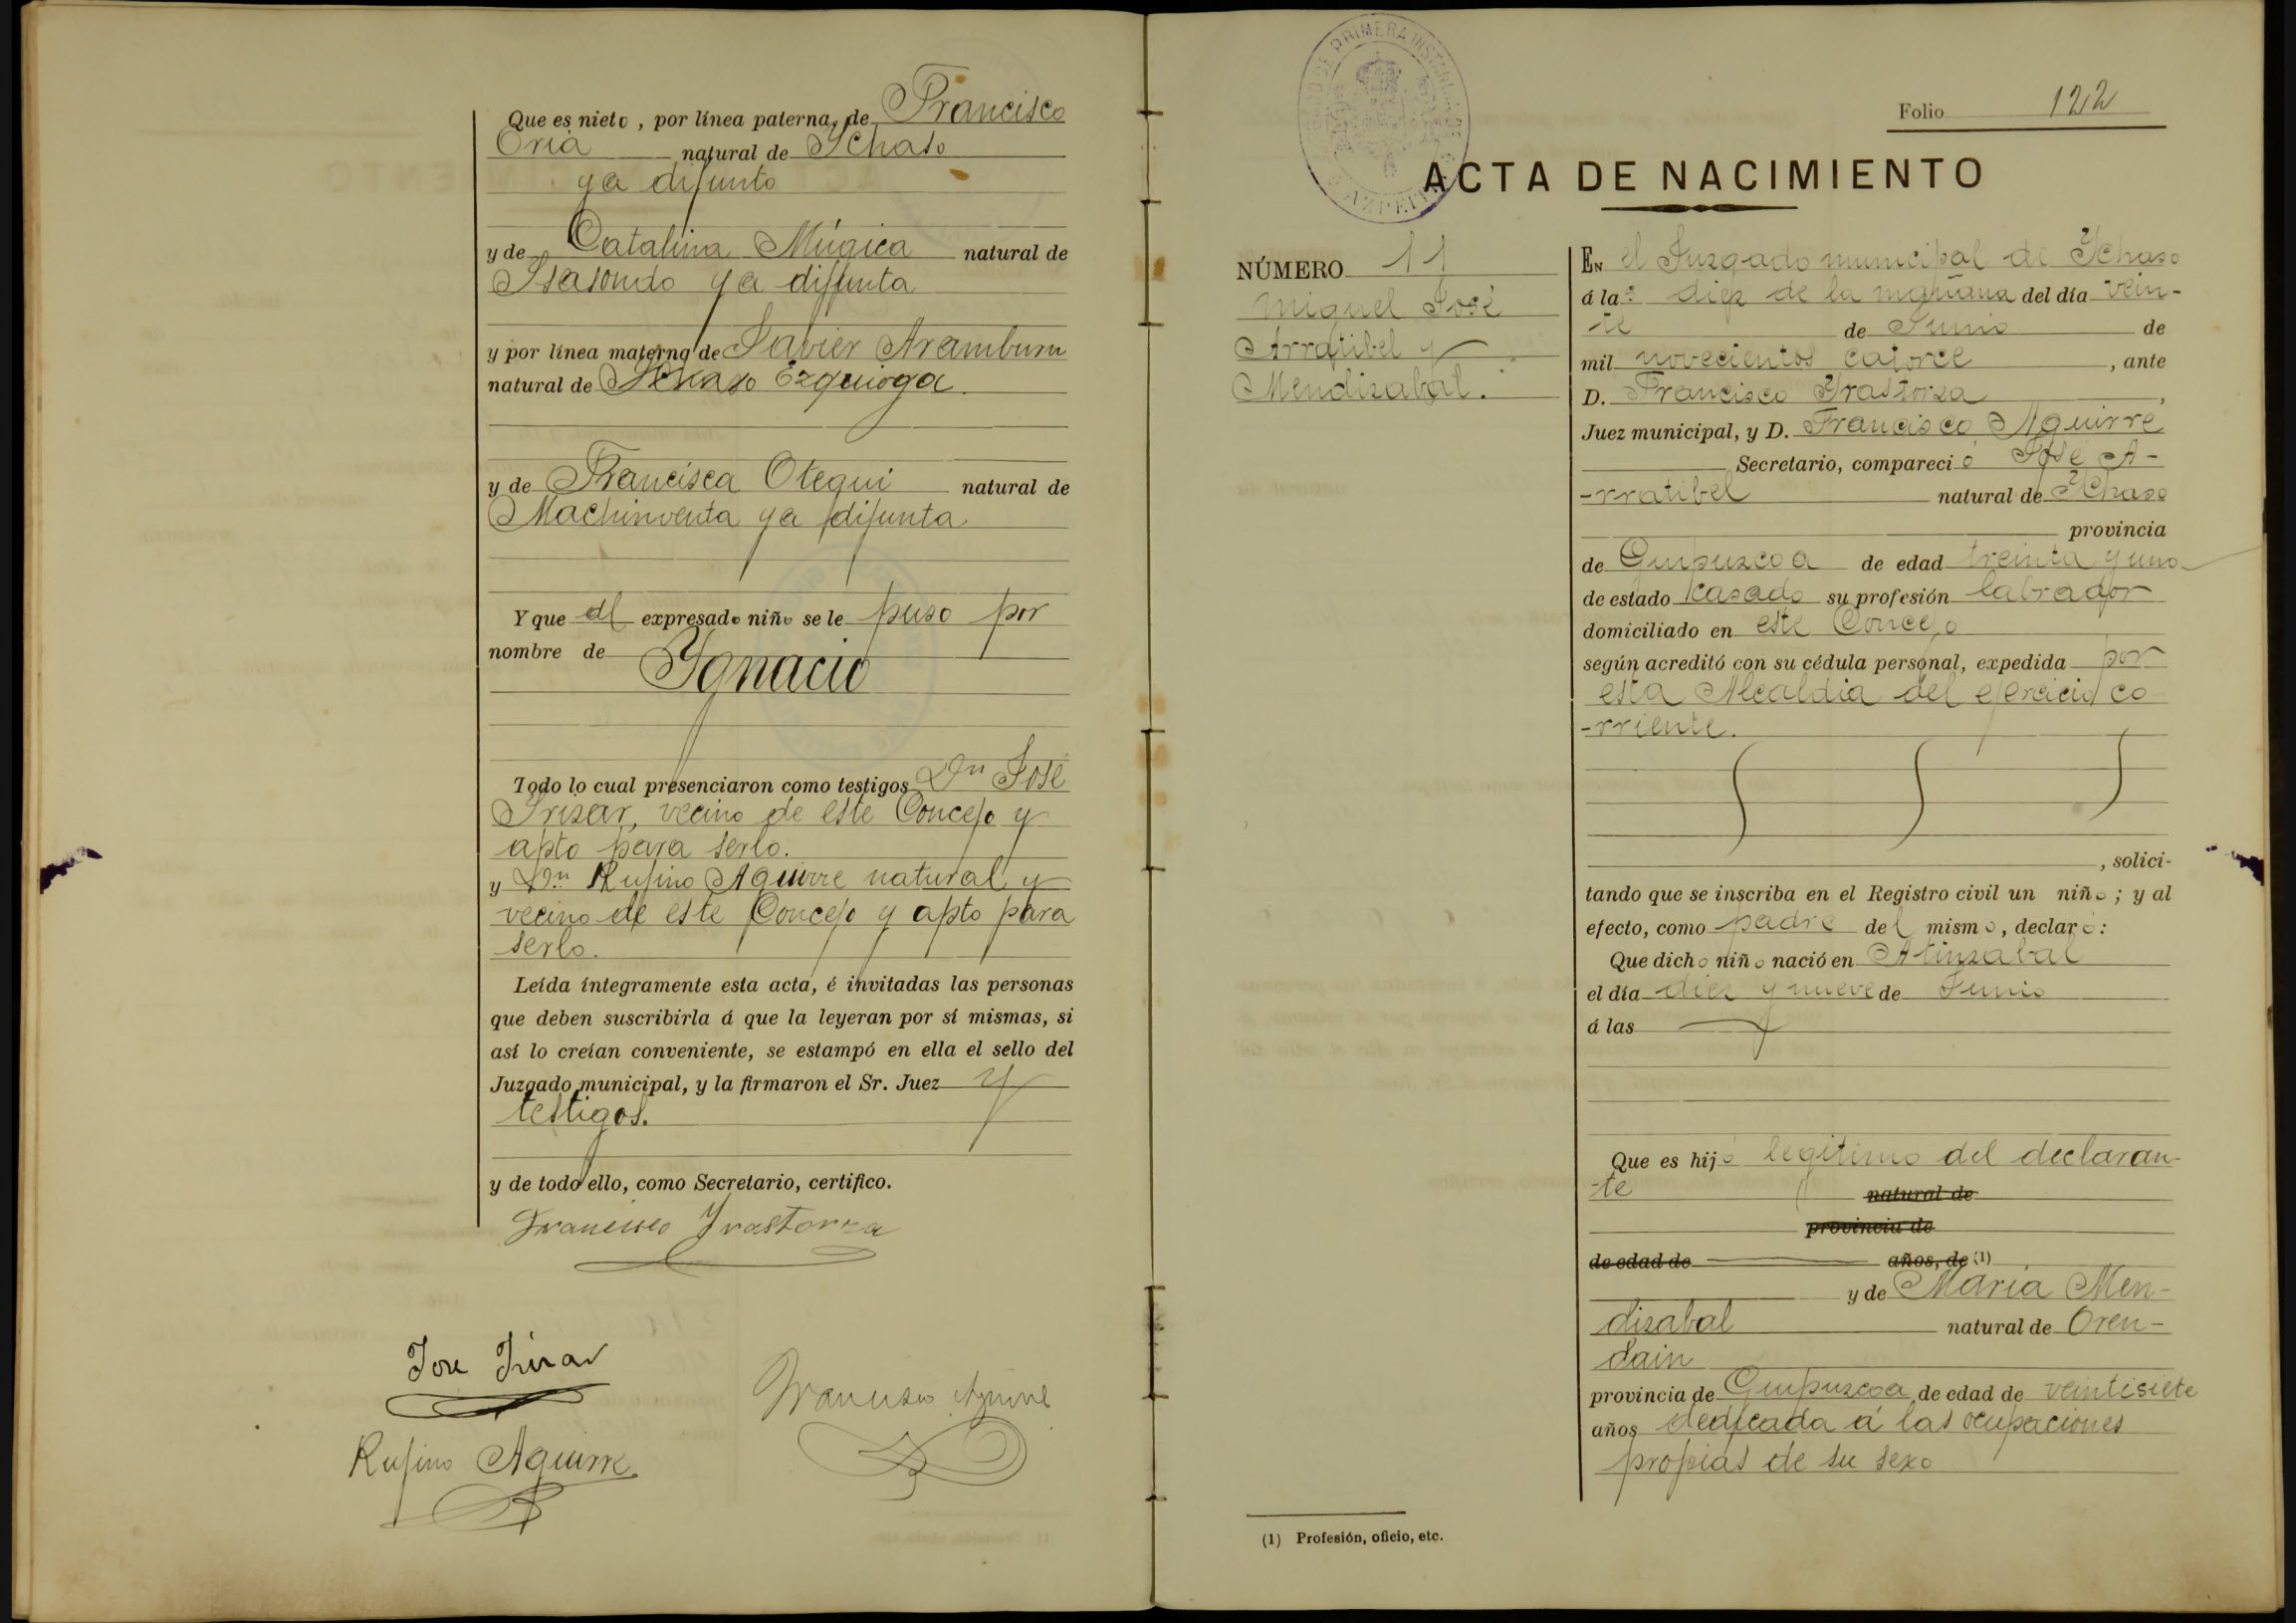 Que es nieto, por línea paterna, de Francisco
Oria natural de Ychaso
ya difunto
y de Catalina Múgica natural de
Isasondo ya difunta
y por línea materna de Javier Aramburu
natural de Ezquioga
y de Francisca Otegui natural de
Machinventa ya difunta
Y que al expresado niño se le puso por
nombre de Ygnacio
Todo lo cual presenciaron como testigos Dn José
Irizar, vecino de este Concejo y
apto para serlo.
y Dn Rufino Aguirre natural y
vecino de este Concejo y apto para
serlo.
Leída íntegramente esta acta, é invitadas las personas
que deben suscribirla á que la leyeran por sí mismas, si
así lo creían conveniente, se estampó en ella el sello del
Juzgado municipal, y la firmaron el Sr. Juez y
testigos.
y de todo ello, como Secretario, certifico.
Francisco Yrastorza
Jose Irizar
Francisco Aguirre
Rufino Aguirre
Folio 122
ACTA DE NACIMIENTO
NÚMERO 11
Miguel José
Arratibel y
Mendizabal.
EN el Juzgado municipal de Ychaso
á las diez de la mañana del día vein-
te de Junio de
mil novecientos catorce, ante
D. Francisco Yrastorza,
Juez municipal, y D. Francisco Aguirre
Secretario, compareció José A-
-rratibel natural de Ychaso
provincia
de Guipuzcoa de edad treinta y uno
de estado casado su profesión labrador
domiciliado en este Concejo
según acreditó con su cédula personal, expedida por
esta Alcaldia del ejercicio co
-rriente.
, solici-
tando que se inscriba en el Registro civil un niño; y al
efecto, como padre del mismo, declaró:
Que dicho niño nació en Atinzabal
el día diez y nueve de Junio
á las
Que es hijo legitimo del declaran-
-te natural de
provincia de
de edad de años, de (1)
y de Maria Men-
dizabal natural de Oren-
dain
provincia de Guipuzcoa de edad de veintisiete
años dedicada á las ocupaciones
propias de su sexo
(1) Profesión, oficio, etc.